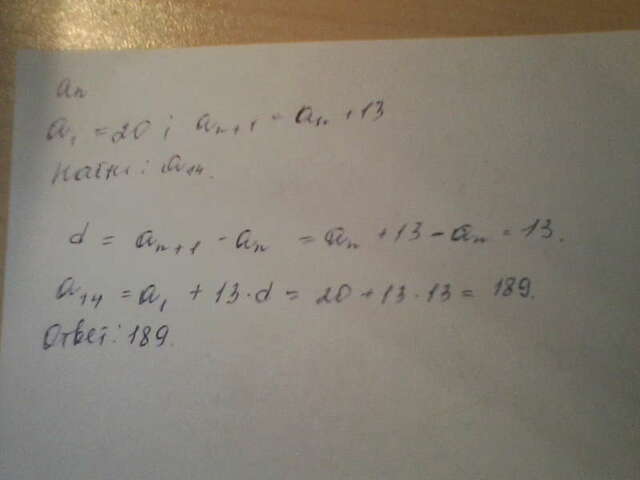 an
a₁ = 20 ; aₙ₊₁ = aₙ + 13
Найти: a₁₄.
d = aₙ₊₁ - aₙ = aₙ + 13 - aₙ = 13.
a₁₄ = a₁ + 13·d = 20 + 13·13 = 189.
Ответ: 189.